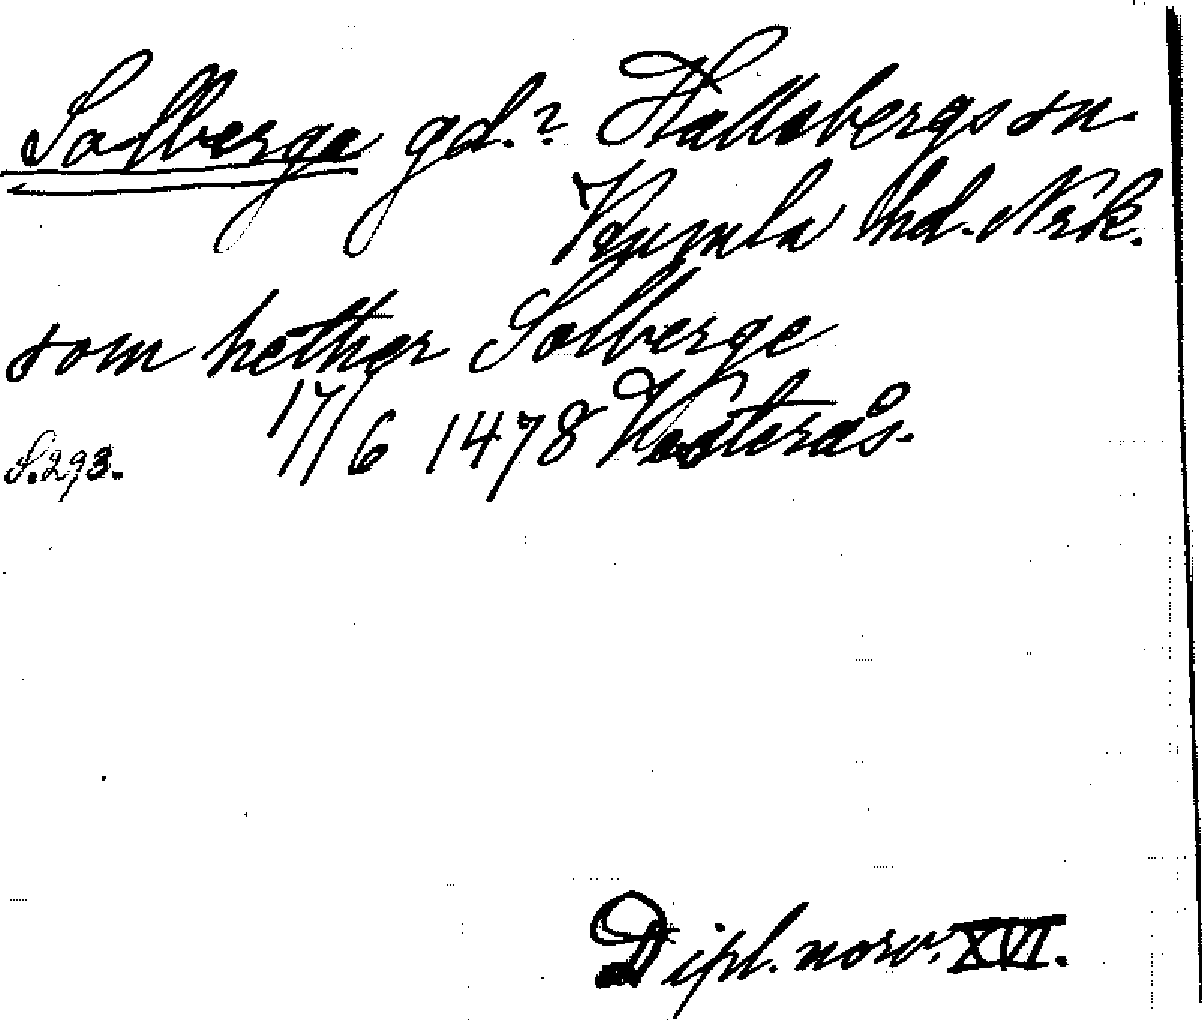 Solberga gd.? Hallsbergs sn.
Kumla hd. Nrk.
som hether Solberge
17/6 1478 Vesterås.
S. 293.
Dipl. norv. XVI.